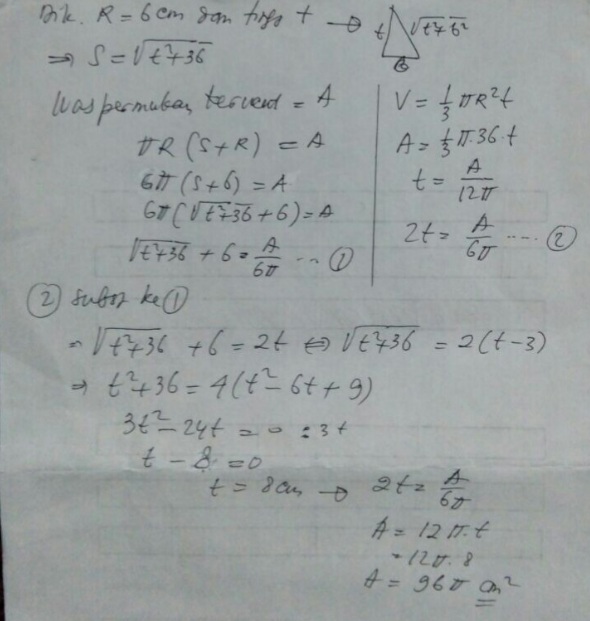 Dik. R = 6 cm dan tinggi t → t √t²+6² 6
⇒ S = √t²+36
Luas permukaan kerucut = A
πR (S+R) = A
6π (S+6) = A
6π (√t²+36 + 6) = A
√t²+36 + 6 = A/6π ... ①
V = 1/3 πR²t
A = 1/3 π.36.t
t = A/12π
2t = A/6π .... ②
② subst ke ①
⇒ √t²+36 + 6 = 2t ⇔ √t²+36 = 2(t-3)
⇒ t²+36 = 4(t²-6t+9)
3t²-24t = 0 :3t
t - 8 = 0
t = 8 cm → 2t = A/6π
A = 12π.t
= 12π.8
A = 96π cm²